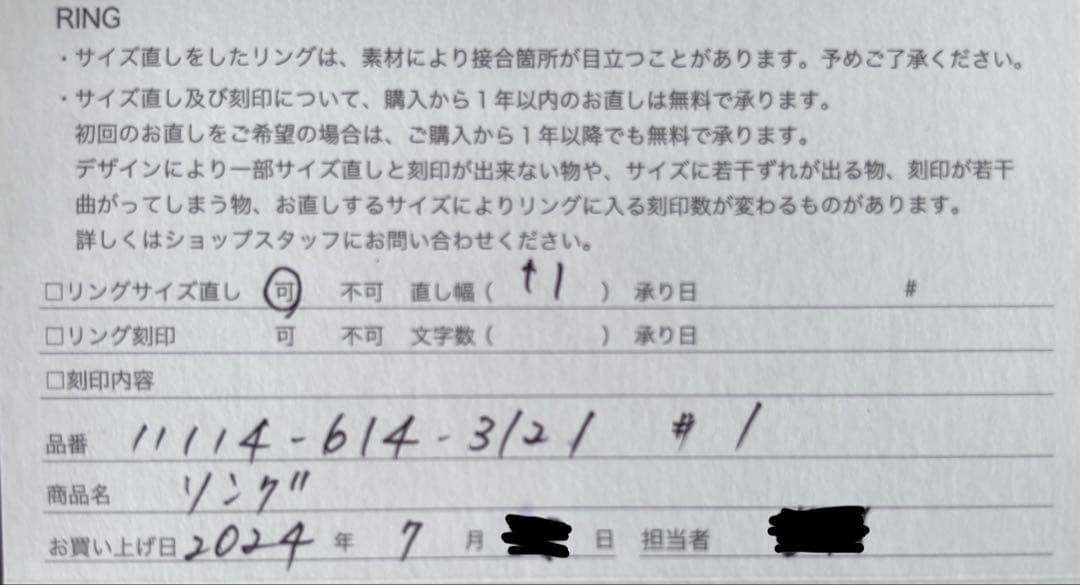 RING
・サイズ直しをしたリングは、素材により接合箇所が目立つことがあります。予めご了承ください。
・サイズ直し及び刻印について、購入から1年以内のお直しは無料で承ります。
初回のお直しをご希望の場合は、ご購入から1年以降でも無料で承ります。
デザインにより一部サイズ直しと刻印が出来ない物や、サイズに若干ずれが出る物、刻印が若干
曲がってしまう物、お直しするサイズによりリングに入る刻印数が変わるものがあります。
詳しくはショップスタッフにお問い合わせください。
□リングサイズ直し 可 不可 直し幅( ↑1 ) 承り日 #
□リング刻印 可 不可 文字数( ) 承り日
□刻印内容
品番 11114-614-3121 #1
商品名 リング
お買い上げ日 2024 年 7 月 日 担当者